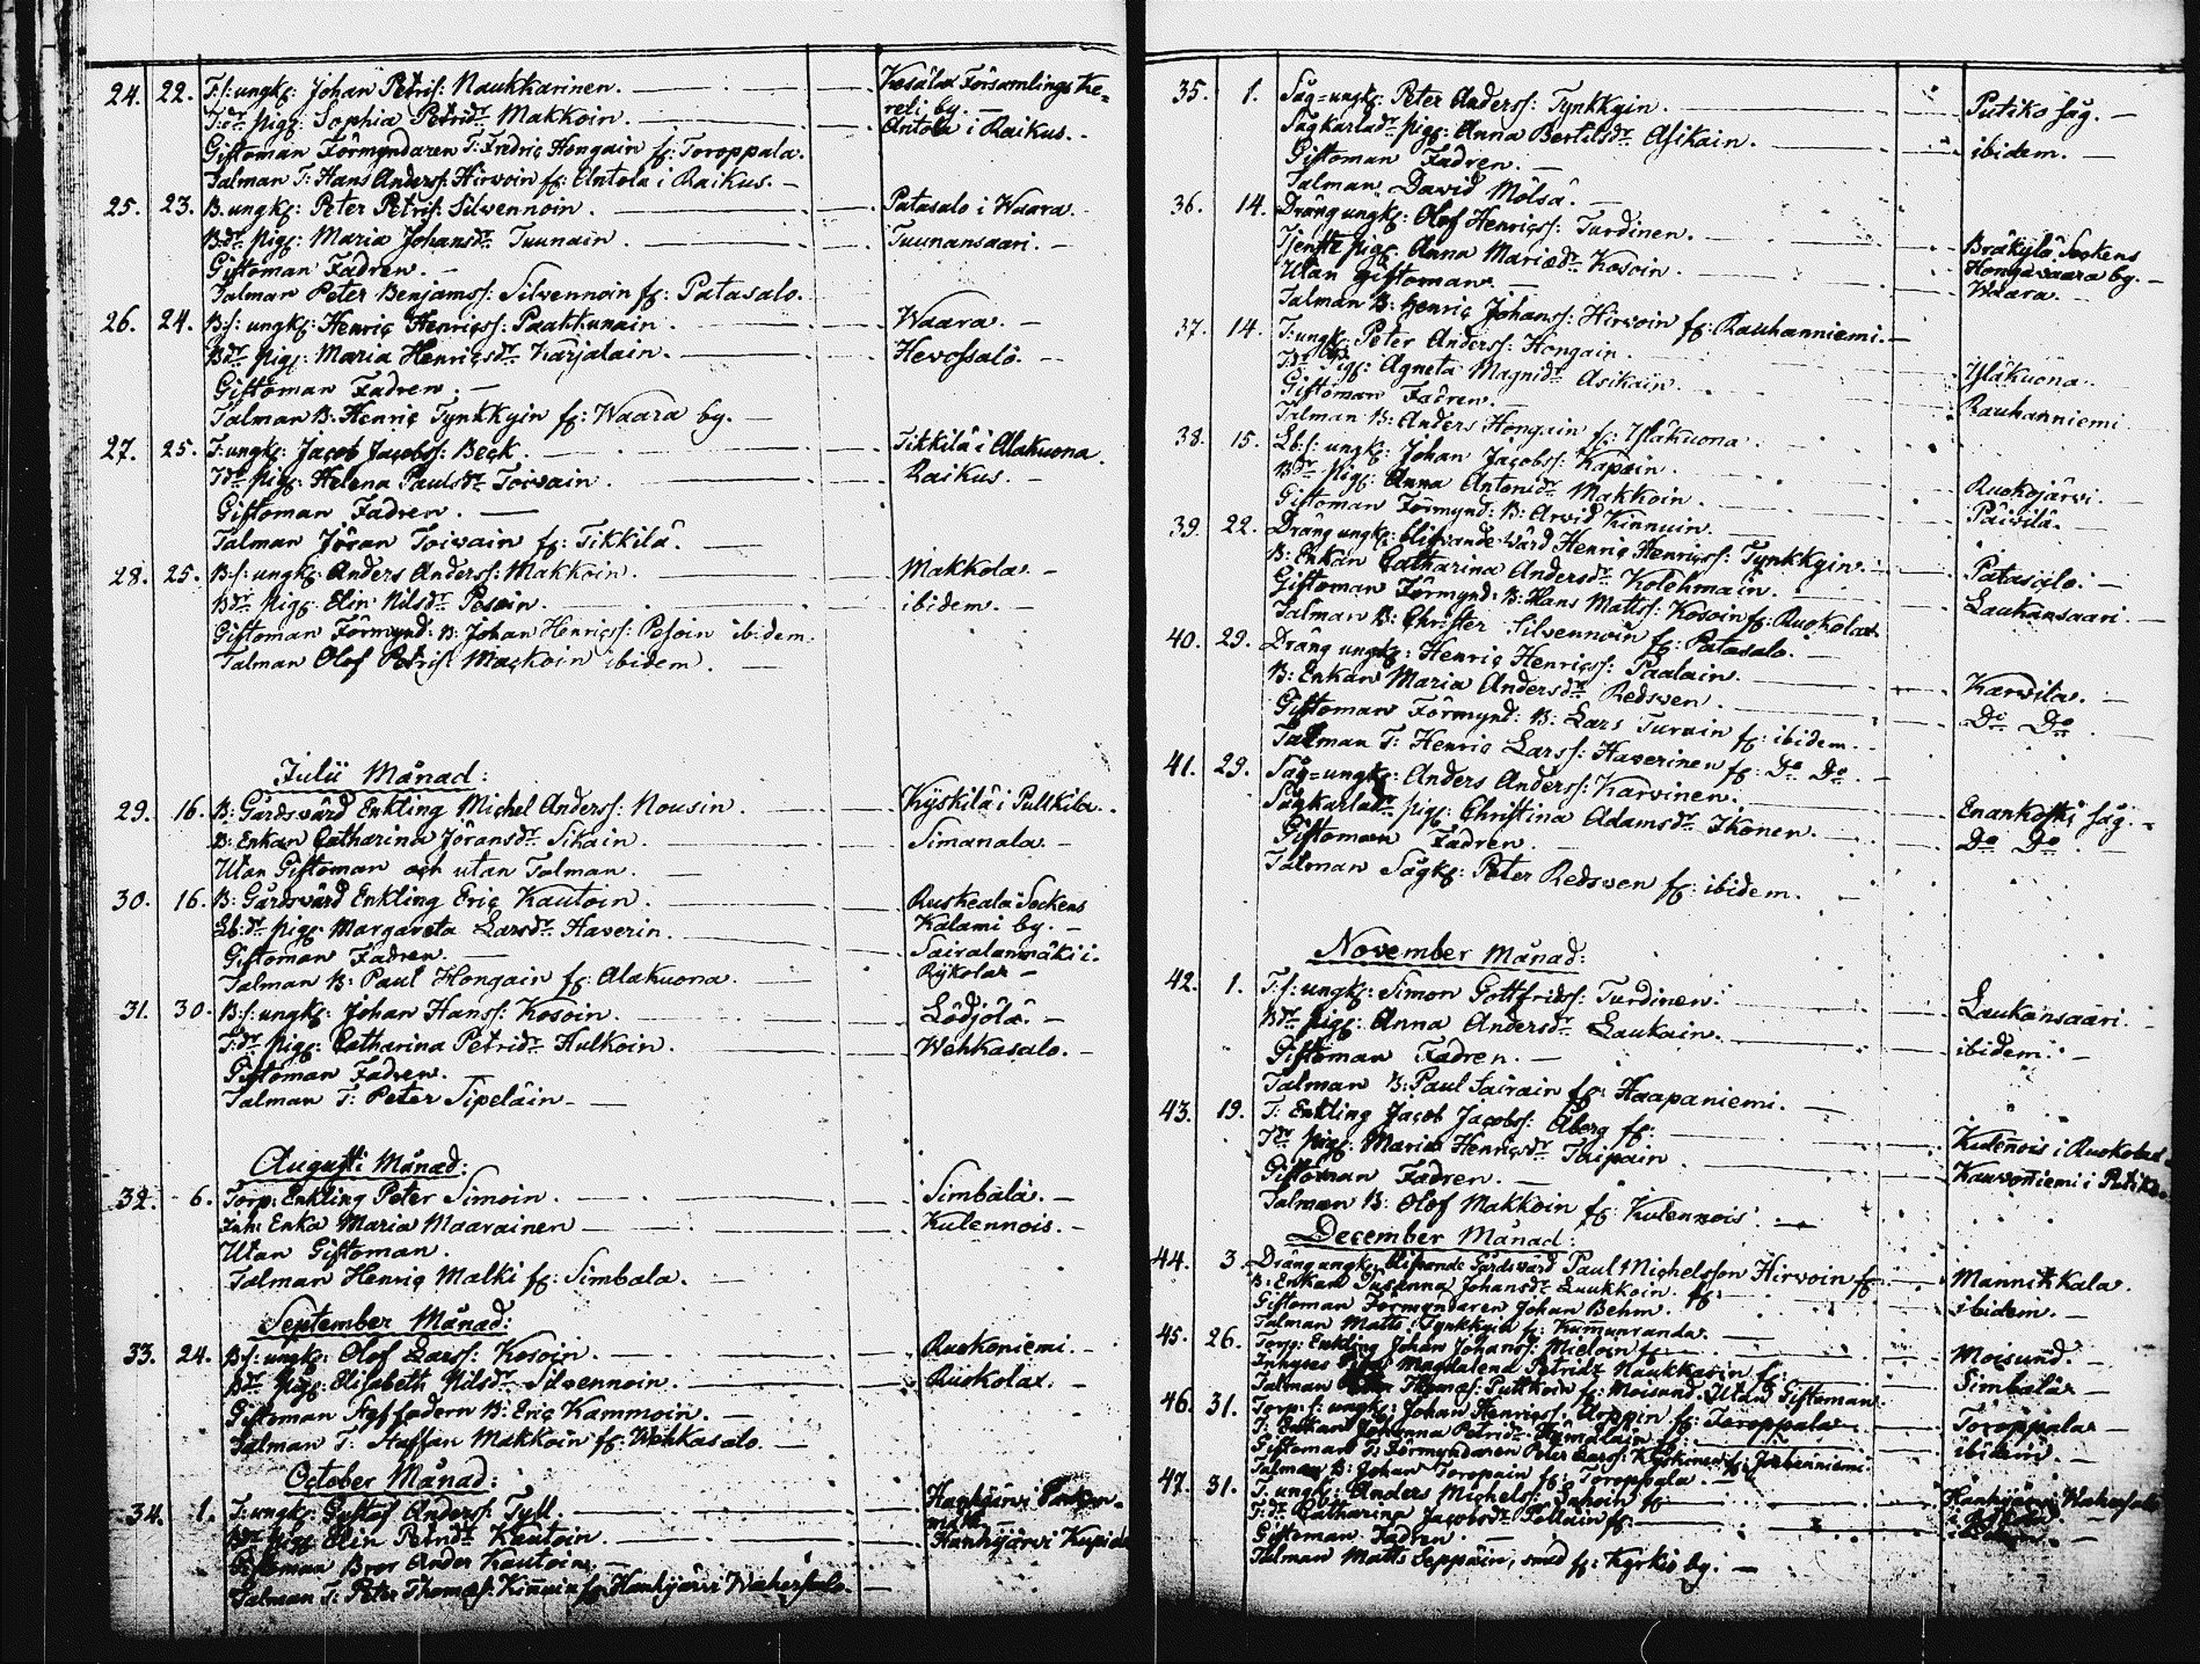 24. 22. T:s: ungk: Johan Petris: Naukkarinen. Kesälax Församlings Ke=
T:dr pig: Sophia Petridr Makkoin. reli by. Antola i Raikus.
Giftoman Förmyndaren T: Fredric Hongain fr: Toroppala.
Talman T: Hans Anderss: Hirvoin fr: Antola i Raikus.
25. 23. B. ungk: Peter Petris: Silvennoin. Patasalo i Waara.
Bdr pig: Maria Johansdr Tuunain. Tuunansaari.
Giftoman Fadren.
Talman Peter Benjamss: Silvennoin fr: Patasalo.
26. 24. B:s: ungk: Henric Henricss: Paakkunain. Waara.
Bdr pig: Maria Henricsdr Karjalain. Hevossalo.
Giftoman Fadren.
Talman B: Henric Tynkkyin fr: Waara by.
27. 25. T: ungk: Jacob Jacobss: Beck. Tikkilä i Alakuona.
Tdr pig: Helena Paulsdr Toivain. Raikus.
Giftoman Fadren.
Talman Jöran Toivain fr: Tikkilä.
28. 25. B:s: ungk: Anders Anderss: Makkoin. Makkola.
Bdr pig: Elin Nilsdr Pesoin. ibidem.
Giftoman Förmynd: B: Johan Henricss: Pesoin ibidem.
Talman Olof Petris: Mackoin ibidem.
Julii Månad:
29. 16. B: Gårdsvärd Enkling Michel Anderss: Nousin. Kyskilä i Pulkkila.
B: Enkan Catharina Jöransdr Sikain. Simanala.
Utan Giftoman och utan Talman.
30. 16. B: Gårdsvärd Enkling Eric Kautoin. Ruskeala Sockens
Lb:dr pig: Margareta Larsdr Haverin. Kalami by.
Giftoman Fadren. Sairalanmäki i
Talman B: Paul Hongain fr: Alakuona. Rykola
31. 30. B:s: ungk: Johan Hanss: Kosoin. Lödjölä.
T:dr pig: Catharina Petridr Hulkoin. Wehkasalo.
Giftoman Fadren.
Talman T: Peter Sipeläin.
Augusti Månad:
32. 6. Torp: Enkling Peter Simoin. Simbala.
Inh: Enka Maria Maarainen Kulennois.
Utan Giftoman.
Talman Henric Malki fr: Simbala.
September Månad:
33. 24. B:s: ungk: Olof Larss: Kosoin. Ruokoniemi.
Bdr pig: Elisabeth Nilsdr Silvennoin. Ruokolax.
Giftoman Styffadern B: Eric Kammoin.
Talman T: Staffan Makkoin fr: Wehkasalo.
October Månad:
34. 1. T: ungk: Gustaf Anderss: Tyll.
Bdr pig: Elin Petridr Kautoin. Hanhijärvi
Giftoman Bror Ander Kautoin.
Talman T: Peter Thomæs: Kinnuin fr: Hanhijärvi Wahersalo.
35. 1. Såg=ungk: Peter Anderss: Tynkkyin. Putiko såg.
Sågkarladr pig: Anna Bertilsdr Asikain. ibidem.
Giftoman Fadren.
Talman David Mölsä.
36. 14. Dräng ungk: Olof Henricss: Turdinen. Bräkylä Sockens
Tjenste pig: Anna Mariædr Kosoin. Hongavaara by.
Utan giftoman. Waara.
Talman B: Henric Johanss: Hirvoin fr: Rauhanniemi.
37. 14. T: ungk: Peter Anderss: Hongain. Yläkuona.
Tdr Pig: Agneta Magnidr Asikain. Rauhanniemi
Giftoman Fadren.
Talman B: Anders Hongain fr: Yläkuona.
38. 15. Lb:s: ungk: Johan Jacobss: Kapain. Ruokojärvi.
Bdr pig: Anna Antonidr Makkoin. Päivilä.
Giftoman Förmynd: B: Arvid Kinnuin.
39. 22. Dräng ungk: blifvande Värd Henric Henricss: Tynkkyin. Patasalo.
B: Enkan Catharina Andersdr Kolehmain. Laukansaari.
Giftoman Förmynd: B: Hans Mattss: Kosoin fr: Ruokolax
Talman B: Christer Silvennoin fr: Patasalo.
40. 29. Dräng ungk: Henric Henricss: Paalain. Karvila.
B: Enkan Maria Andersdr Redsven. Do Do
Giftoman Förmynd: B: Lars Turain fr: ibidem.
Talman T: Henric Larss: Haverinen fr: Do Do.
41. 29. Såg=ungk: Anders Anderss: Karvinen. Enankoski såg.
Sågkarladr pig: Christina Adamsdr Ikonen. Do Do
Giftoman Fadren.
Talman Sågk: Peter Redsven fr: ibidem.
November Månad:
42. 1. T:s: ungk: Simon Gottfridss: Turdinen. Laukansaari.
Bdr pig: Anna Andersdr Laukain. ibidem.
Giftoman Fadren.
Talman B: Paul Sairain fr: Haapaniemi.
43. 19. T: Enkling Jacob Jacobss: Åberg fr: Kulennois i Ruokolax
Tdr pig: Maria Henricsdr Taipain Kauvoniemi i Putiko
Giftoman Fadren.
Talman B: Olof Makkoin fr: Kulennois.
December Månad:
44. 3. Dräng ungk: blifvande Gårdsvärd Paul Michelsson Hirvoin fr: Mannikkala.
B: Enkan Susanna Johansdr Luukkoin fr: ibidem.
Giftoman Förmyndaren Johan Behm.
Talman Matts Tynkkyin fr: Kummunranda.
45. 26. Torp: Enkling Johan Johanss: Mieloin fr: Moisund.
Inhyses Magdalena Petridr Naukkarin fr: Simbala
Talman Thomæs: Pulkkoin fr: Moisund. Utan Giftoman.
46. 31. Torp:s: ungk: Johan Henricss: Arppin fr: Toroppala Toroppala
T: Enkan Johanna Petridr Hämäläin fr: ibidem.
Giftoman T: Förmyndaren Peter Larss: Kyskinen fr:
Talman B: Johan Toropain fr: Toroppala.
47. 31. T: ungk: Anders Michelss: fr: Hanhijärvi Wahersalo
T:dr Catharina Jacobsdr Pelluin fr:
Giftoman Fadren.
Talman Matts Seppäin, smed fr: Kyrkio by.